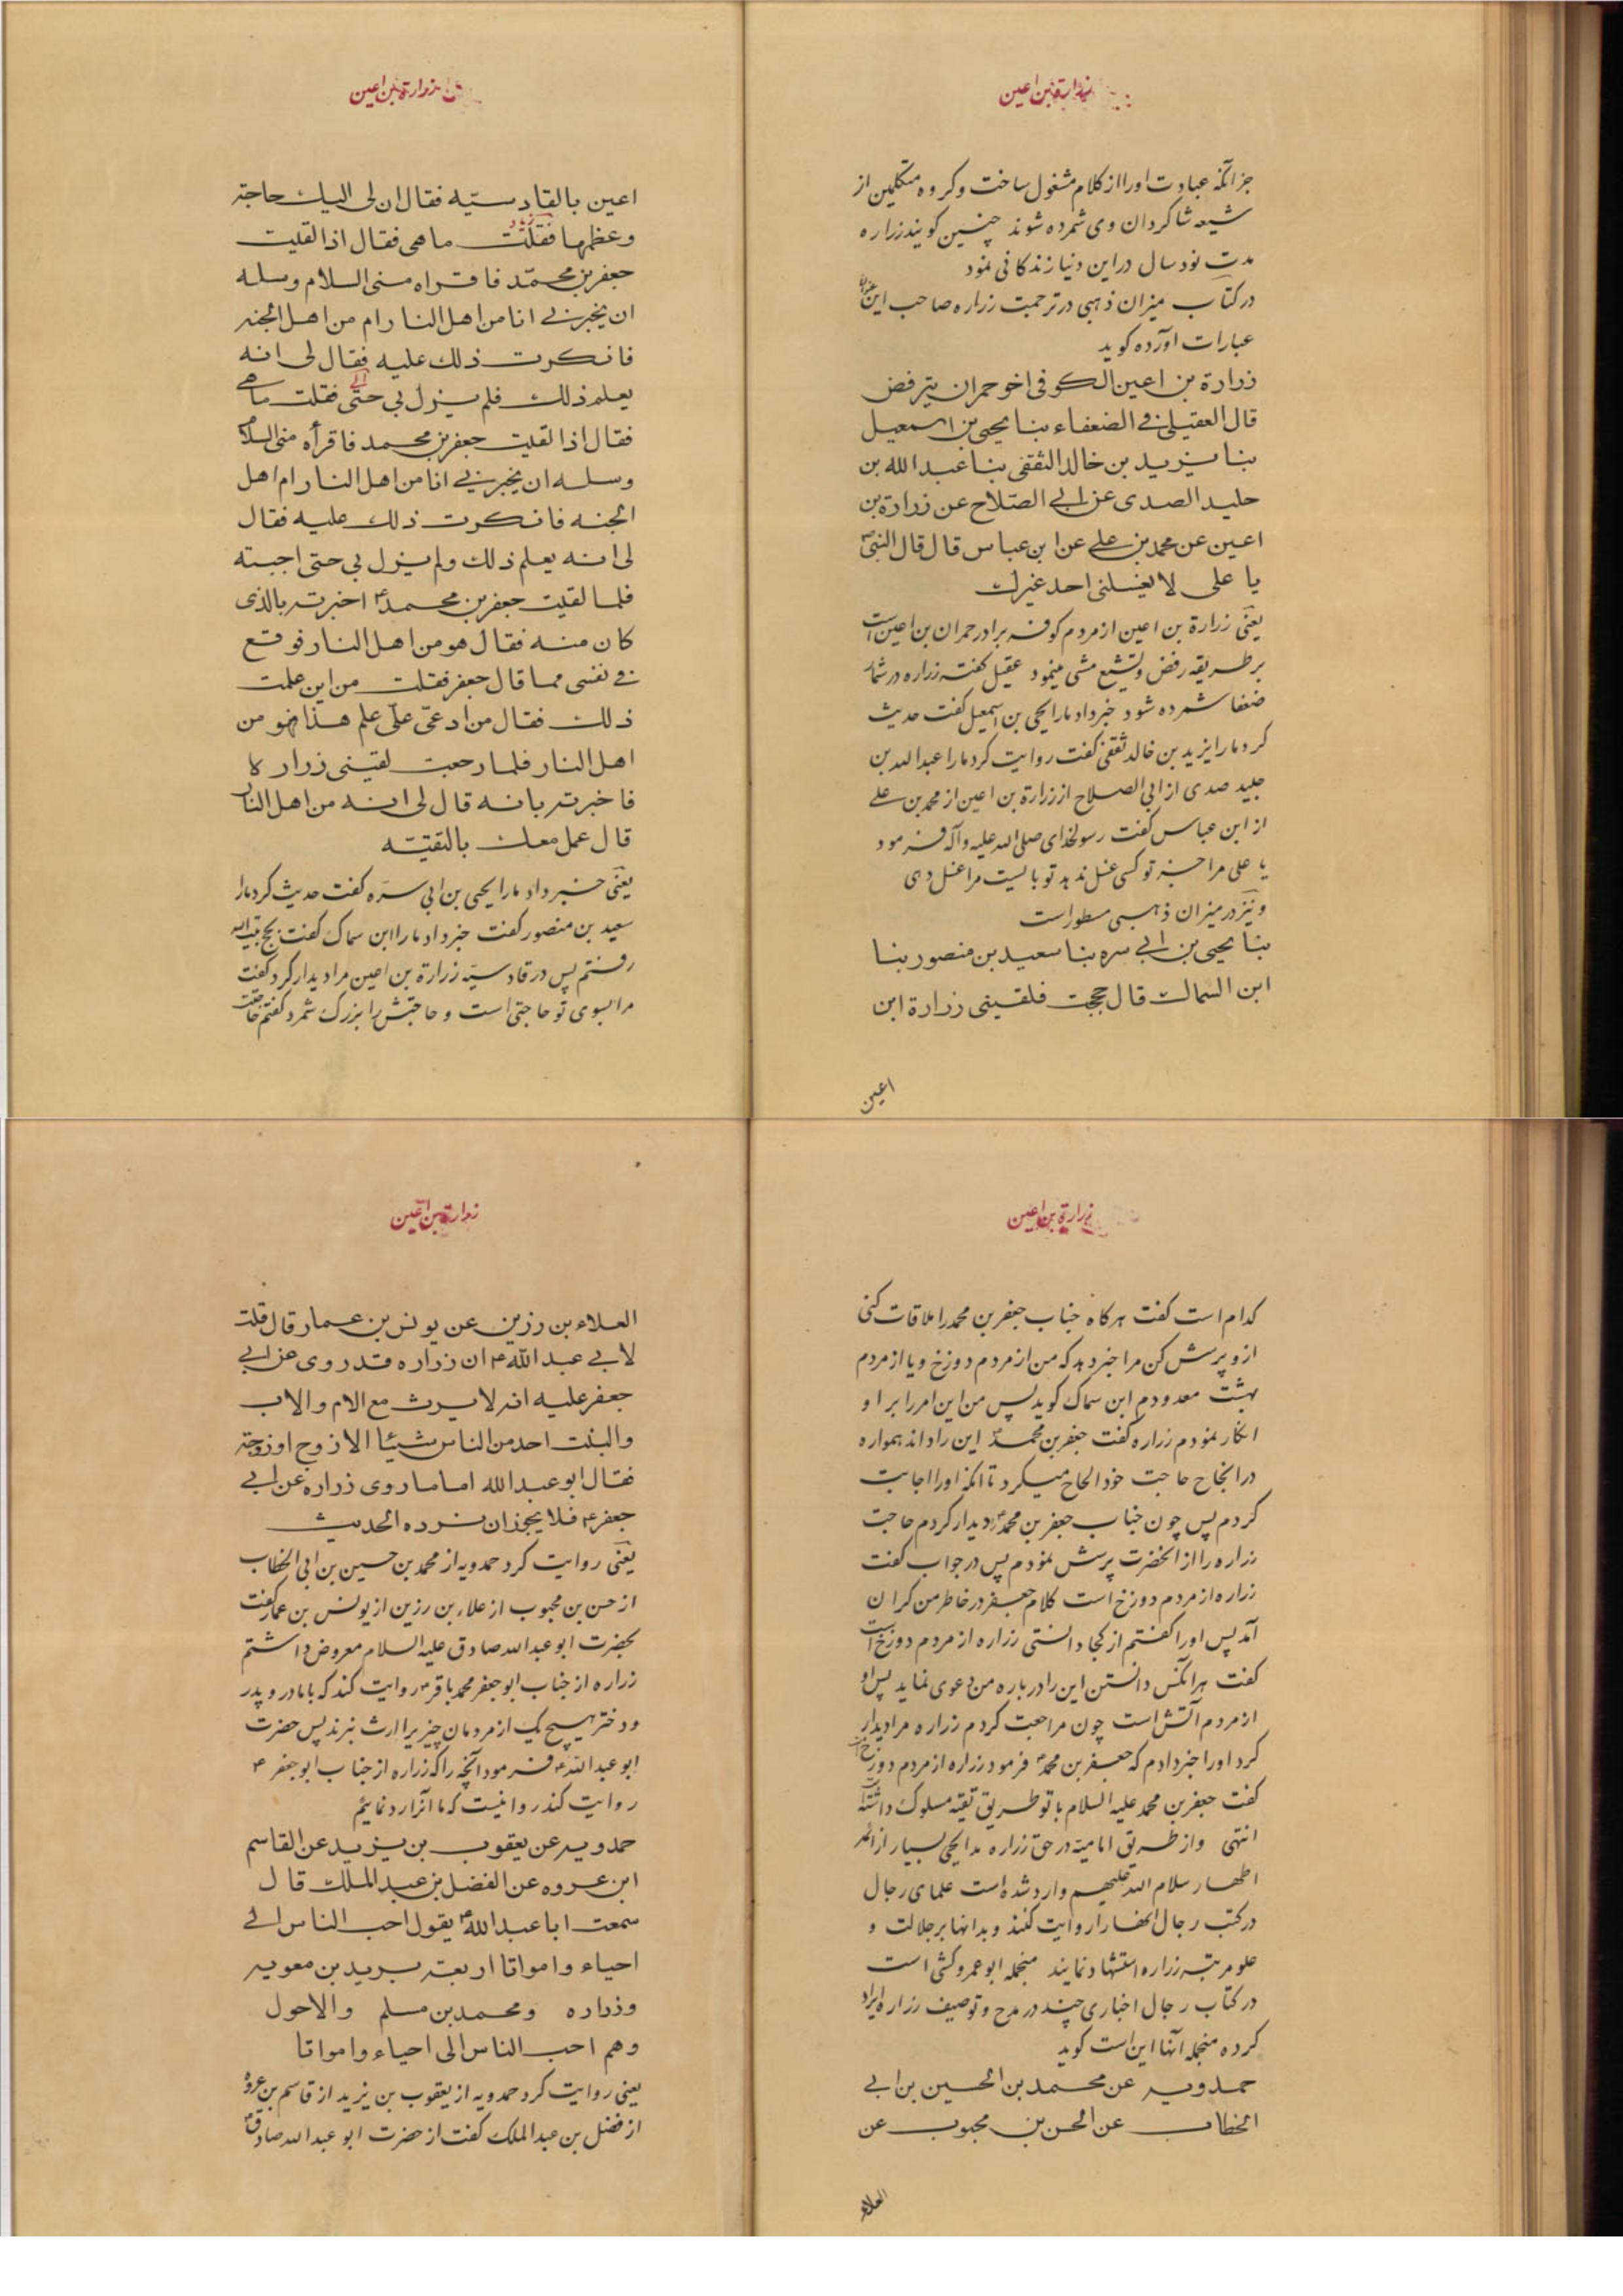 زرارة بن اعین
جز آنکه عبادت اورا از کلام مشغول ساخت وکروه متکلمین از
شیعه شاکردان وی شمرده شوند چنین کویند زراره
مدت نود سال در این دنیا زندکانی نمود
در کتاب میزان ذهبی در ترجمت زراره صاحب این عنوان
عبارات آورده کوید
زرارة بن اعین الکوفی اخو حمران یترفض
قال العقیلی فی الضعفاء بنا یحیی بن اسمعیل
بنا یزید بن خالد الثقفی بنا عبد الله بن
خلید الصدی عن ابی الصلاح عن زرارة بن
اعین عن محمد بن علی عن ابن عباس قال قال النبی ص
یا علی لا یغسلنی احد غیرک
یعنی زرارة بن اعین از مردم کوفه برادر حمران بن اعین است
بر طریقه رفض وتشیع مشی مینمود عقیلی کفته زراره در شمار
ضعفا شمرده شود خبر داد مارا یحیی بن اسمعیل کفت حدیث
کرد مارا یزید بن خالد ثقفی کفت روایت کرد مارا عبد الله بن
خلید صدی از ابی الصلاح از زرارة بن اعین از محمد بن علی
از ابن عباس کفت رسولخدای صلی الله علیه وآله فرمود
یا علی مرا جز تو کسی غسل ندهد تو بایست مرا غسل دهی
ونیز در میزان ذهبی مسطور است
بنا یحیی بن ابی سره بنا سعید بن منصور بنا
ابن السماک قال حججت فلقینی زرارة ابن
اعین
زرارة بن اعین
اعین بالقادسیّه فقال ان لی الیک حاجة
وعظمها فقلت ما هی فقال اذا لقیت
جعفر بن محمّد فاقراه منی السلام وسله
ان یخبرنی انا من اهل النار ام من اهل الجنه
فانکرت ذلک علیه فقال لی انه
یعلم ذلک فلم یزل بی حتّی فقلت ما هی
فقال اذا لقیت جعفر بن محمد فاقرأه منی السلام
وسله ان یخبرنی انا من اهل النار ام اهل
الجنه فانکرت ذلک علیه فقال
لی انه یعلم ذلک ولم یزل بی حتی اجبته
فلما لقیت جعفر بن محمد ع اخبرته بالذی
کان منه فقال هو من اهل النار فوقع
فی نفسی مما قال جعفر فقلت من این علمت
ذلک فقال من ادعی علیّ علم هذا فهو من
اهل النار فلما رجعت لقینی زراره
فاخبرته بانه قال لی انه من اهل النار
قال عمل معک بالتقیّه
یعنی خبر داد مارا یحیی بن ابی سره کفت حدیث کرد مارا
سعید بن منصور کفت خبر داد مارا ابن سماک کفت بحج بیت الله
رفتم پس در قادسیّه زرارة بن اعین مرا دیدار کرد کفت
مرا بسوی تو حاجتی است وحاجتش را بزرک شمرد کفتم حاجتت
زرارة بن اعین
کدام است کفت هرکاه جناب جعفر بن محمد را ملاقات کنی
ازو پرسش کن مرا خبر دهد که من از مردم دوزخ ویا از مردم
بهشت معدودم ابن سماک کوید پس من این امر را بر او
انکار نمودم زراره کفت جعفر بن محمد این را داند همواره
در انجاح حاجت خود الحاح میکرد تا آنکه اورا اجابت
کردم پس چون جناب جعفر بن محمد ع دیدار کردم حاجت
زراره را از آنحضرت پرسش نمودم پس در جواب کفت
زراره از مردم دوزخ است کلام جعفر در خاطر من کران
آمد پس اورا کفتم از کجا دانستی زراره از مردم دوزخ است
کفت هر آنکس دانستن این را درباره من دعوی نماید پس او
از مردم آتش است چون مراجعت کردم زراره مرا دیدار
کرد اورا خبر دادم که جعفر بن محمد ع فرمود زراره از مردم دوزخ است
کفت جعفر بن محمد علیه السلام با تو طریق تقیه مسلوک داشته است
انتهی واز طریق امامیه در حق زراره مدایحی بسیار از ائمه
اطهار سلام الله علیهم وارد شده است علمای رجال
در کتب رجال آنها را روایت کنند وبدانها بر جلالت و
علو مرتبه زراره استشهاد نمایند منجمله ابو عمرو کشی است
در کتاب رجال اخباری چند در مدح وتوصیف زراره ایراد
کرده منجمله آنها این است کوید
حمدویه عن محمد بن الحسین بن ابی
الخطاب عن الحسن بن محبوب عن
العلاء
زرارة بن اعین
العلاء بن رزین عن یونس بن عمار قال قلت
لابی عبد الله ع ان زراره قد روی عن ابی
جعفر علیه انه لا یرث مع الام والاب
والبنت احد من الناس شیئا الا زوج او زوجة
فقال ابو عبد الله اما ما روی زراره عن ابی
جعفر ع فلا یجوز ان نرده الحدیث
یعنی روایت کرد حمدویه از محمد بن حسین بن ابی الخطاب
از حسن بن محبوب از علاء بن رزین از یونس بن عمار کفت
بحضرت ابو عبد الله صادق علیه السلام معروض داشتم
زراره از جناب ابو جعفر محمد باقر ع روایت کند که با مادر وپدر
ودختر هیچ یک از مردمان چیزیرا ارث نبرند پس حضرت
ابو عبد الله ع فرمود آنچه را که زراره از جناب ابو جعفر ع
روایت کند روا نیست که ما آنرا رد نمایم
حمدویه عن یعقوب بن یزید عن القاسم
ابن عروه عن الفضل بن عبد الملک قال
سمعت ابا عبد الله ع یقول احب الناس الی
احیاء وامواتا اربعة برید بن معویه
وزراره ومحمد بن مسلم والاحول
وهم احب الناس الی احیاء وامواتا
یعنی روایت کرد حمدویه از یعقوب بن یزید از قاسم بن عروه
از فضل بن عبد الملک کفت از حضرت ابو عبد الله صادق ع